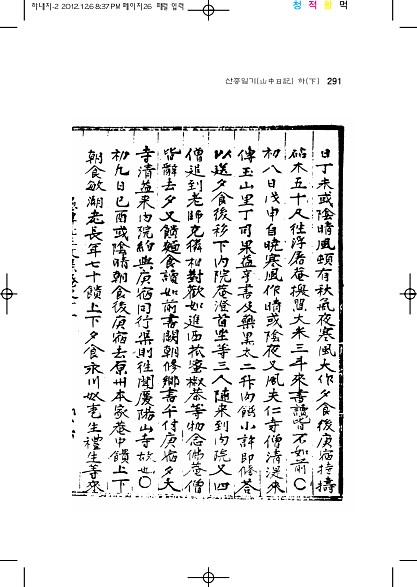 하내지-2 2012.12.6 8:37 PM 페이지26 째렬 입력
청 적 황 먹
산중일기(山中日記) 하(下) 291
日丁未或陰晴風頗有秋氣夜寒風大作夕食後庚宿持擣
砧木五十尺往浮屠菴換買大米三斗來書讀皆不如前○
初八日戊申自曉寒風作晴或陰夜又風夫仁寺僧淸湜來
傳玉山里丁可果益亨書及藥黑太二升內餡小許卽修答
以送夕食後移下內院菴澄首坐等三人隨來到內院又四
僧追到老師克構和對歡如進西苽蜜椒恭等物念佛菴僧
皆辭去夕又饋麵食讀如前書關朝修鄕書千付庚宿夕大
寺淸益來內院約與庚宿同行渠則往聞廣陽山寺故也○
初九日己酉或陰晴朝食後庚宿去原州本家菴中饋上下
朝食敏湖老長年七十饋上下夕食永川奴 生禮生等來